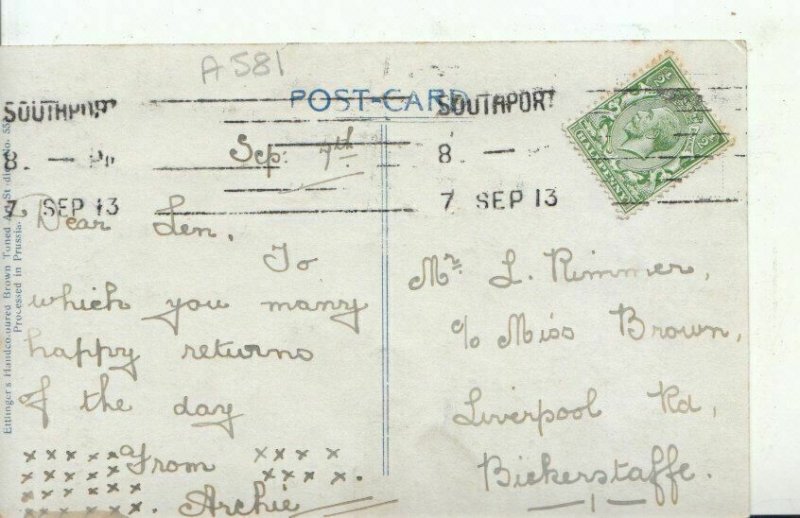 A 581
POST-CARD
SOUTHPORT
8. —
7 SEP 13
SOUTHPORT
8 —
7 SEP 13
HALFPENNY
Sep. 7th
Dear Len,
To
which you many
happy returns
of the day
From
Archie
x x x x x x x
x x x x x x x
x x x x x x x
x x x x x x x
x x x x
x x x x .
Mr. L. Rimmer,
c/o Miss Brown,
Liverpool Rd,
Bickerstaffe.
Ettlinger's Handcoloured Brown Toned
Processed in Prussia.